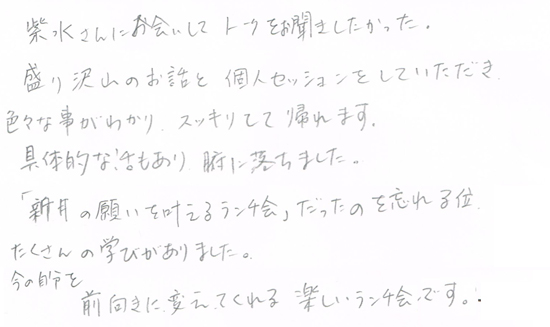 柴水さんにお会いして トークをお聞きしたかった。
盛り沢山のお話と 個人セッションをしていただき
色々な事がわかり、スッキリして帰れます。
具体的な話もあり 腑に落ちました。
「新月の願いを叶えるランチ会」だったのを忘れる位
たくさんの学びがありました。
今の自分を
前向きに変えてくれる 楽しいランチ会です。